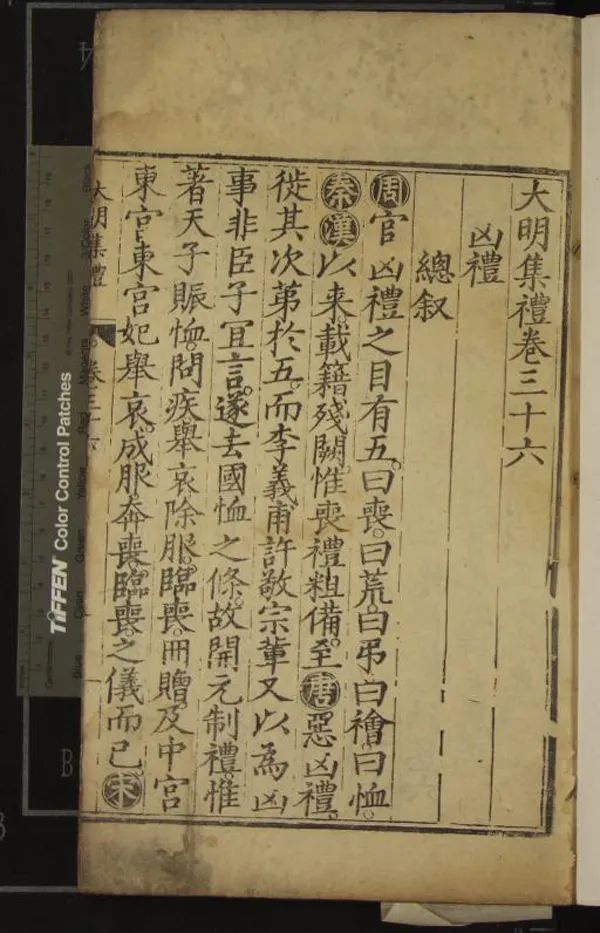 大明集禮卷三十六
凶禮
總叙
周官凶禮之目有五曰喪曰荒曰弔曰禬曰恤
秦漢以来載籍殘闕惟喪禮粗備至唐惡凶禮
徙其次第於五而李義甫許敬宗輩又以為凶
事非臣子冝言遂去國恤之條故開元制禮惟
著天子賑恤問疾舉哀除服臨喪冊贈及中宮
東宮東宮妃舉哀成服奔喪臨喪之儀而已宋
大明集禮
卷三十六
TIFFEN Color Control Patches